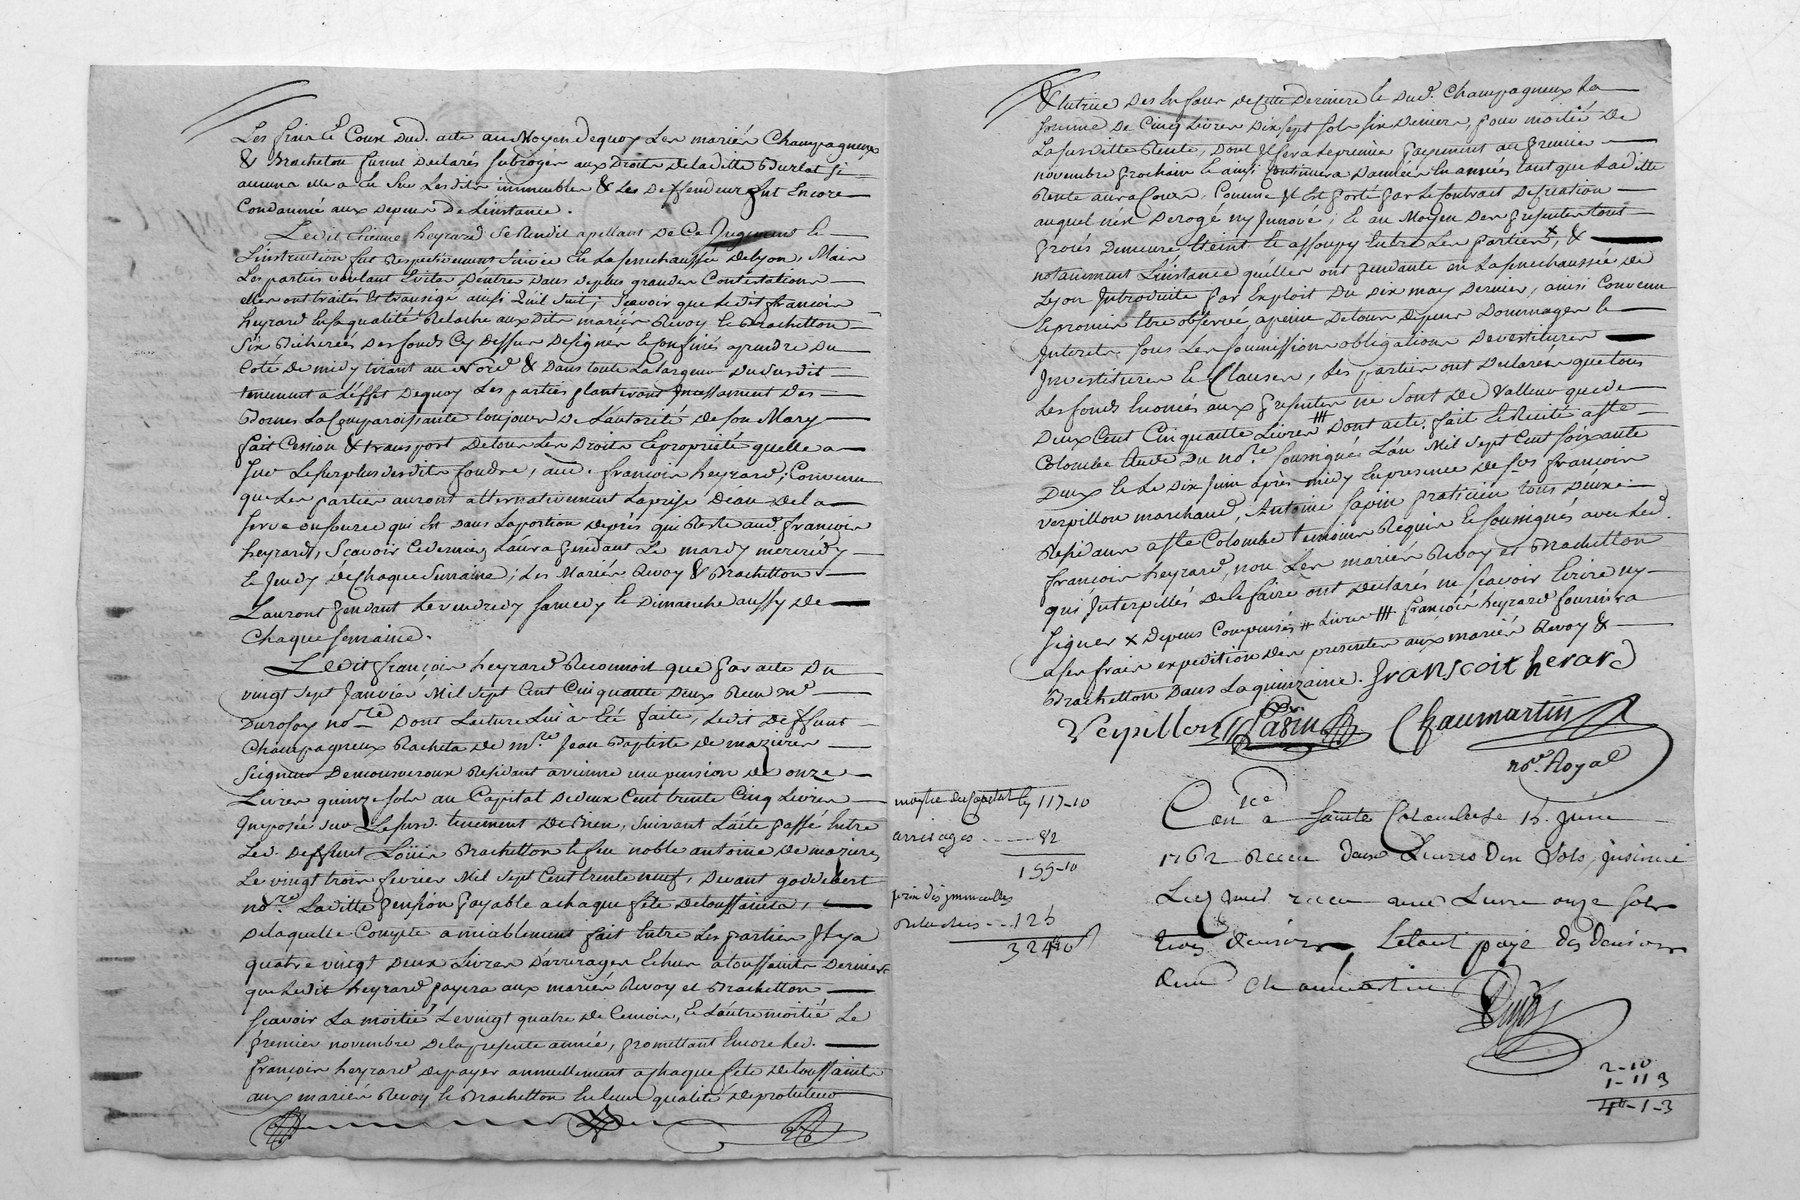 Les frais et Coust dud. acte au Moyen dequoy Les mariés Champagneux
& Brachetton furent declarés subrogés aux Droits deladitte Burlat si
aucuns elle a Eu sur Lesdits immeubles & Les Deffendeur fut Encore
Condamné aux depens De Linstance.
Ledit Etienne heyrard se Rendit apellant de Ce Jugement Et
L'instruction fut Respectivement suivie En La senechaussée de Lyon, Mais
Les parties voulant Eviter D'entrer dans de plus grandes Contestations
elles ont traités Et transigé ainsi Quil suit; Scavoir que Ledit françois
heyrard En sa qualité Relache aux Dits mariés Revoy Et Brachetton
Six Bicherées Des fonds Cy Dessus Designés Et Confinés a prendre Du
Coté De midy tirant au Nord & Dans toute La Largeur Dusudit
tenement a L'effet Dequoy Les parties planteront Incessament Des
Bornes La Comparoissante toujours De L'autorité De son Mary
fait Cession & transport De tous Les Droits Et proprieté quelle a
sur Le surplus desdits fonds, aud. françois heyrard; Convenu
que Les parties auront alternativement La prise D'eau De La
serve ou source qui Est Dans La portion De prés qui Reste aud françois
heyrard, Scavoir Ce dernier L'aura pendant Le mardy mercredy
Et Jeudy de Chaque Semaine; Les Mariés Revoy & Brachetton
L'auront pendant Le vendredy samedy Et Dimanche aussy De
Chaque semaine.
Ledit françois heyrard Reconnoit que par acte Du
vingt sept Janvier Mil Sept Cent Cinquante Deux Reçu me
Durosoy nore Dont Lecture Lui à Eté faite, Ledit Deffunt
Champagneux Racheta De mre Jean Baptiste De mazieres
Seigneur Residant a vienne une pension De onze
Livres quinze sols au Capital De deux Cent trente Cinq Livres
Imposée sur Le susd. tenement De Bien, Suivant L'acte passé Entre
Led. Deffunt Loüis Brachetton Et feu noble antoine De mazieres
Le vingt trois fevrier Mil Sept Cent trente neuf, Devant
nore Laditte pension payable a chaque fête De toussaints,
De laquelle Compte amiablement fait Entre Les parties Il y a
quatre vingt Deux Livres D'arrerages Echus a toussaints Dernier
que Ledit heyrard payera aux mariés Revoy et Brachetton
Scavoir La moitié Le vingt quatre De Ce mois, Et L'autre moitié Le
premier novembre De la presente année, promettant Encore Led.
françois heyrard De payer annuellement a chaque fête De toussaints
aux mariés Revoy Et Brachetton En Leur qualité De protuteur
& tutrice Des Enfans De Cette Derniere Et Dud. Champagneux La
somme De Cinq Livres Dix sept sols six Deniers, pour moitié De
La susditte Rente, Dont Il fera Le premier payement au premier
novembre prochain Et ainsi Continuera D'années En années tant que Laditte
Rente aura Cours, Comme Il Est porté par Le Contrait De Creation
auquel n'est Derogé ny Innové; Et au Moyen Des presentes tout
procés Demeure Eteint Et assoupy Entre Les parties x, &
notamment L'instance qu'elles ont pendante En La senechaussée De
Lyon Introduite par Exploit Du six may Dernier, ainsi Convenu
Et promis Etre observé, a peine De tous Depens Dommages Et
Interets, sous Les soumissions obligations Devestitures
Investitures Et Clauses, Les parties ont Declarés que tous
Les fonds Enoncés aux presentes ne sont De Valleur que De
Deux Cent Cinquante Livres ### Dont acte. fait Et Recité a Ste
Colombe Etude Du nore soussigné L'an Mil Sept Cent soixante
Deux Et Le Dix Juin aprés midy En presence De srs françois
verpillon marchand, Antoine Sapin praticien tous Deux
Residants a Ste Colombe temoins Requis Et soussignés avec Led.
françois heyrard, non Les mariés Revoy et Brachetton
qui Interpellés De Le faire ont declarés ne Scavoir Ecrire ny
signer x Depens Compensés # Livres ### françois heyrard fournira
a ses frais expedition Des presentes aux mariés Revoy &
Brachetton Dans La quinzaine. franscoit herard
Verpillon Sapin Chaumartin
nore. Royal
moytie du Capital Ey 117-10
arrirages ---- 82
199-10
prix des immeubles
Relachés -- 125
324-10
Conlé a Sainte Colombe le 15. Juin
1762 Receu deux Livres dix sols, Insinué
Led jour receu une Livre onze sols
trois deniers, Letout payé des deniers
dud Chaumartin
2-10
1-11 3
4tt-1-3